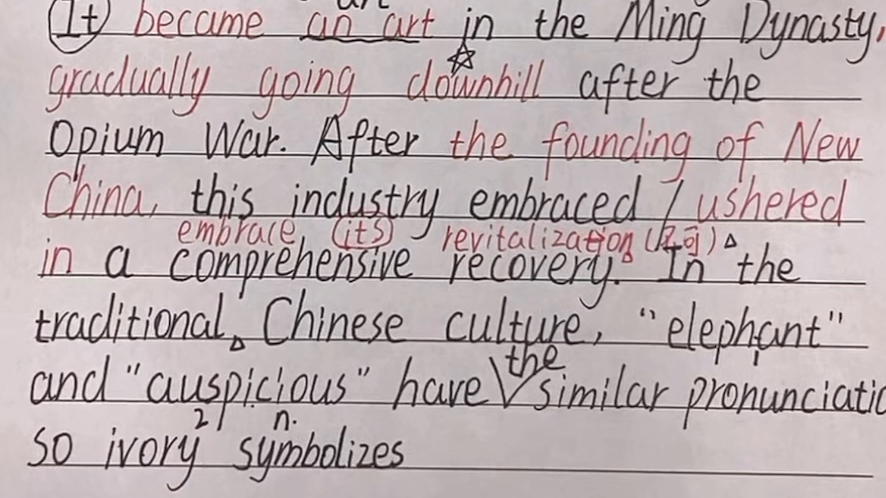 It became an art in the Ming Dynasty,
gradually going downhill after the
Opium War. After the founding of New
China, this industry embraced / ushered
embrace (its) revitalization
in a comprehensive recovery. In the
traditional Chinese culture, "elephant"
the
and "auspicious" have similar pronunciatio
2 n.
so ivory symbolizes